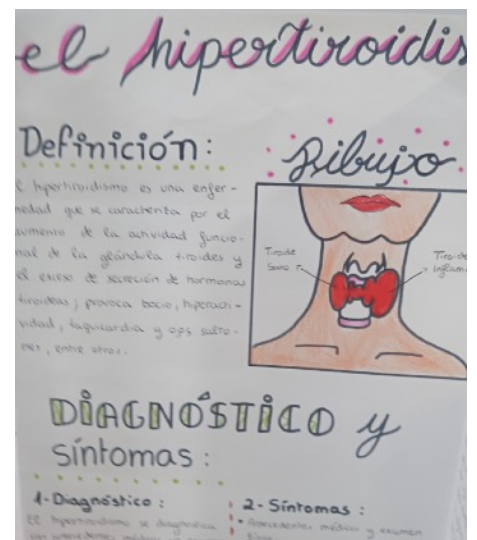 el hipertiroidis
Definición:
l hipertiroidismo es una enfer-
medad que se caracteriza por el
aumento de la actividad funcio-
nal de la glándula tiroides y
el exceso de secreción de hormonas
tiroideas; provoca bocio, hiperacti-
vidad, taquicardia y ojos salto-
nes, entre otros.
Dibujo
Tiroide
Sano
Tiroide
Inflam
DIAGNÓSTICO y
síntomas:
1-Diagnóstico:
El hipertiroidismo se diagnostica
con antecedentes médicos
2-Síntomas:
• Antecedentes médicos y examen